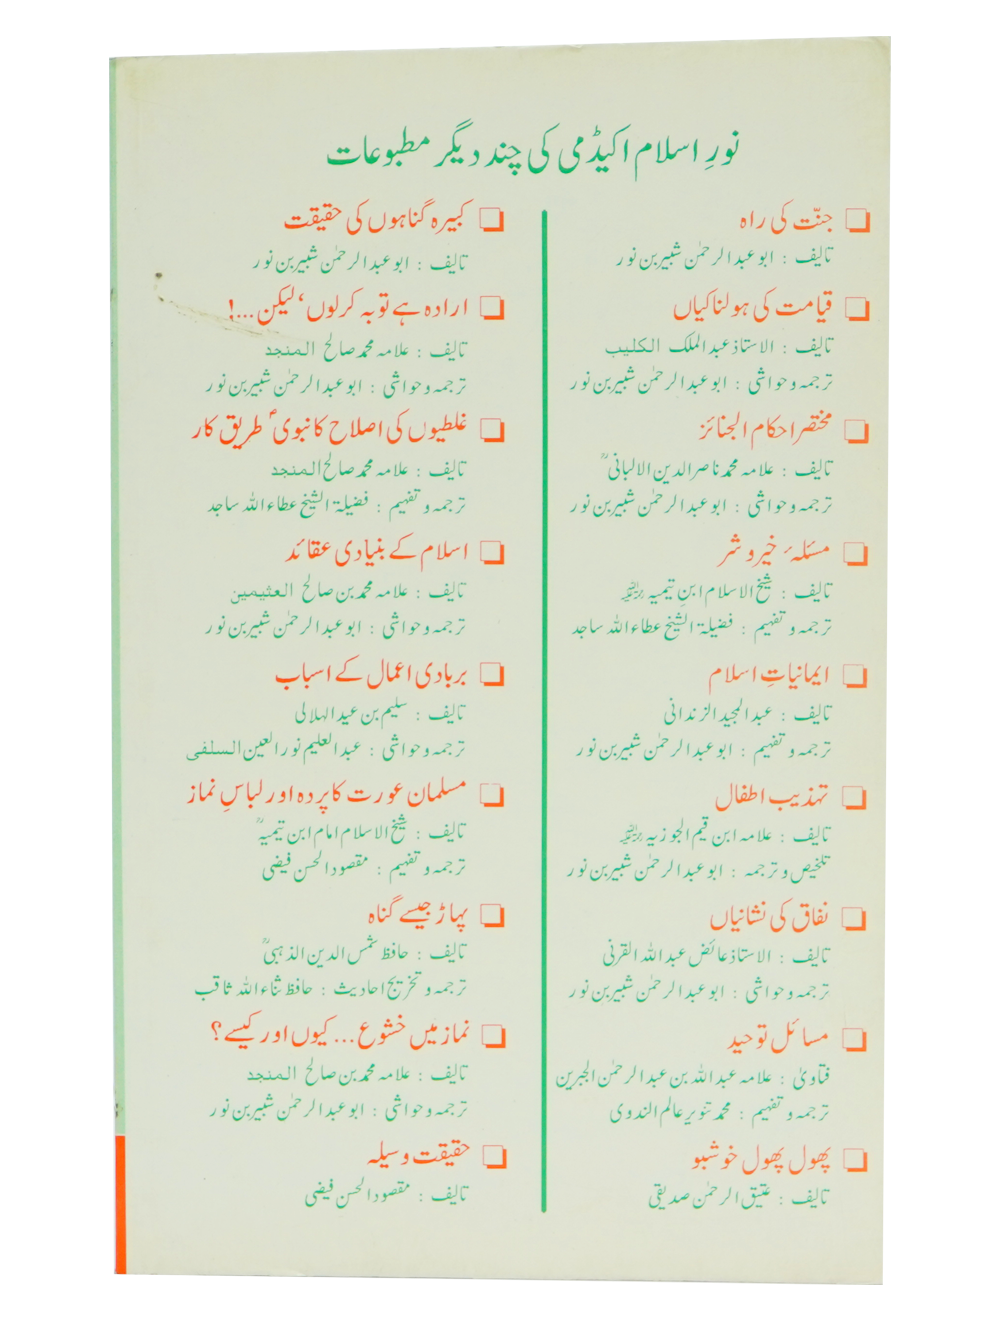 نورِ اسلام اکیڈمی کی چند دیگر مطبوعات
جنّت کی راہ
تالیف : ابو عبدالرحمٰن شبیر بن نور
قیامت کی ہولناکیاں
تالیف : الاستاذ عبدالملک الکلیب
ترجمہ وحواشی : ابو عبدالرحمٰن شبیر بن نور
مختصر احکام الجنائز
تالیف : علامہ محمد ناصرالدین الالبانیؒ
ترجمہ وحواشی : ابو عبدالرحمٰن شبیر بن نور
مسَلہ خیر و شر
تالیف : شیخ الاسلام ابنِ تیمیہ رحمہ اللہ
ترجمہ و تفہیم : فضیلۃ الشیخ عطاء اللہ ساجد
ایمانیاتِ اسلام
تالیف : عبدالمجید الزندانی
ترجمہ و تفہیم : ابو عبدالرحمٰن شبیر بن نور
تہذیب اطفال
تالیف : علامہ ابن قیم الجوزیہ رحمہ اللہ
تلخیص و ترجمہ : ابو عبدالرحمٰن شبیر بن نور
نفاق کی نشانیاں
تالیف : الاستاذ عائض عبداللہ القرنی
ترجمہ وحواشی : ابو عبدالرحمٰن شبیر بن نور
مسائل توحید
فتاویٰ : علامہ عبداللہ بن عبدالرحمٰن الجبرین
ترجمہ و تفہیم : محمد تنویر عالم الندوی
پھول پھول خوشبو
تالیف : عتیق الرحمٰن صدیقی
کبیرہ گناہوں کی حقیقت
تالیف : ابو عبدالرحمٰن شبیر بن نور
ارادہ ہے توبہ کرلوں، لیکن...!
تالیف : علامہ محمد صالح المنجد
ترجمہ وحواشی : ابو عبدالرحمٰن شبیر بن نور
غلطیوں کی اصلاح کا نبویؐ طریق کار
تالیف : علامہ محمد صالح المنجد
ترجمہ و تفہیم : فضیلۃ الشیخ عطاء اللہ ساجد
اسلام کے بنیادی عقائد
تالیف : علامہ محمد بن صالح العثیمین
ترجمہ وحواشی : ابو عبدالرحمٰن شبیر بن نور
بربادی اعمال کے اسباب
تالیف : سلیم بن عید الہلالی
ترجمہ وحواشی : عبدالعلیم نورالعین السلفی
مسلمان عورت کا پردہ اور لباسِ نماز
تالیف : شیخ الاسلام امام ابن تیمیہؒ
ترجمہ و تفہیم : مقصود الحسن فیضی
پہاڑ جیسے گناہ
تالیف : حافظ شمس الدین الذہبیؒ
ترجمہ و تخریج احادیث : حافظ ثناء اللہ ثاقب
نماز میں خشوع... کیوں اور کیسے؟
تالیف : علامہ محمد بن صالح المنجد
ترجمہ وحواشی : ابو عبدالرحمٰن شبیر بن نور
حقیقت وسیلہ
تالیف : مقصود الحسن فیضی